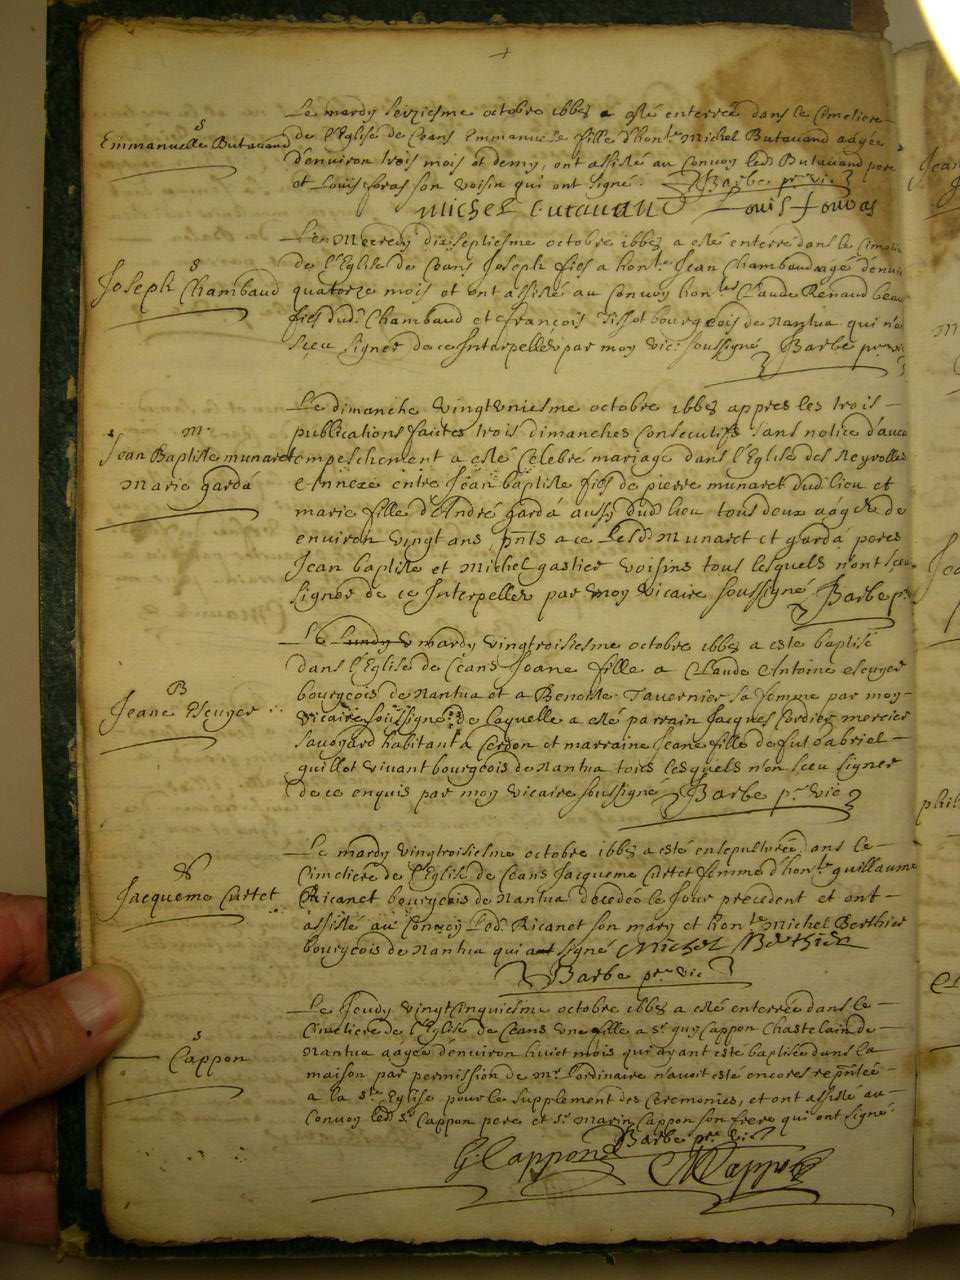 +
S
Emmanuelle Butavand
Le mardy seiziesme octobre 1668 a esté enterrée dans le Cimetiere
de l'Eglise de Ceans Emmanuelle fille d'hon.te Michel Butavand aagée
d'environ trois mois et demy, ont assisté au Convoy led. Butavand pere
et Louis foras son voisin qui ont signé. Barbe p.r vic
Michel Butavand Louis foras
S
Joseph Chambaud
Le Mecredy dixseptiesme octobre 1668 a esté enterré dans le
de l'Eglise de Ceans Joseph fils a hon.te Jean Chambaud aagé
quatorze mois et ont assisté au Convoy hon.tes Claude Renaud beau
fils dud. Chambaud et françois Tissot bourgeois de Nantua qui n'
sceu signer de ce Interpellés par moy vic. soussigné Barbe p.r vic
M.
Jean Baptiste munaret
Marie garda
Le dimanche vingtuniesme octobre 1668 appres les trois
publications faictes trois dimanches consecutifs sans notice d'aucu
empeschement a esté Celebré mariage dans l'Eglise des Neyrolles
Annexe entre Jean baptiste fils de pierre munaret dud. lieu et
marie fille d'André garda aussy dud. lieu tous deux aagés de
environ vingt ans, pñts a ce Lesd. Munaret et garda peres
Jean baptiste et Michel gastier voisins tous lesquels n'ont sceu
signer de ce Interpellés par moy vicaire soussigné Barbe p.r
B
Jeane Escuyer
Le Lundy v mardy vingtroisiesme octobre 1668 a esté baptisé
dans l'Eglise de Ceans Jeane fille a Claude Antoine escuyer
bourgeois de Nantua et a Benoiste Tavernier sa femme par moy
vicaire soussigné de Laquelle a esté parrain Jacques Cordier mercier
savoyard habitant a Cerdon et marraine Jeane fille de fut Gabriel
guillot vivant bourgeois de Nantua tous lesquels n'on sceu signer
de ce enquis par moy vicaire soussigné Barbe p.r vic
S
Jacqueme Curtet
Le mardy vingtroisiesme octobre 1668 a esté ensepulturée dans le
Cimetiere de l'Eglise de Ceans Jacqueme Curtet femme d'hon.te guillaume
Ricanet bourgeois de Nantua decedée le Jour precedent et ont
assisté au Convoy Led. Ricanet son mary et hon.te Michel Berthier
bourgeois de Nantua qui ont signé Michel Berthier
Barbe p.r vic
S
Cappon
Le Jeudy vingtcinquiesme octobre 1668 a esté enterrée dans le
Cimetiere de l'Eglise de Ceans une fille a S.r guy Cappon Chastelain de
Nantua aagée d'environ huict mois qui ayant esté baptisée dans la
maison par permission de m.r l'ordinaire n'avoit esté encores repñtée
a la S.te Eglise pour le supplement des Ceremonies, et ont assisté au
Convoy led. S.r Cappon pere et S.r Marin Cappon son frere qui ont signé
Barbe p.r vic
G. Cappon M Cappon